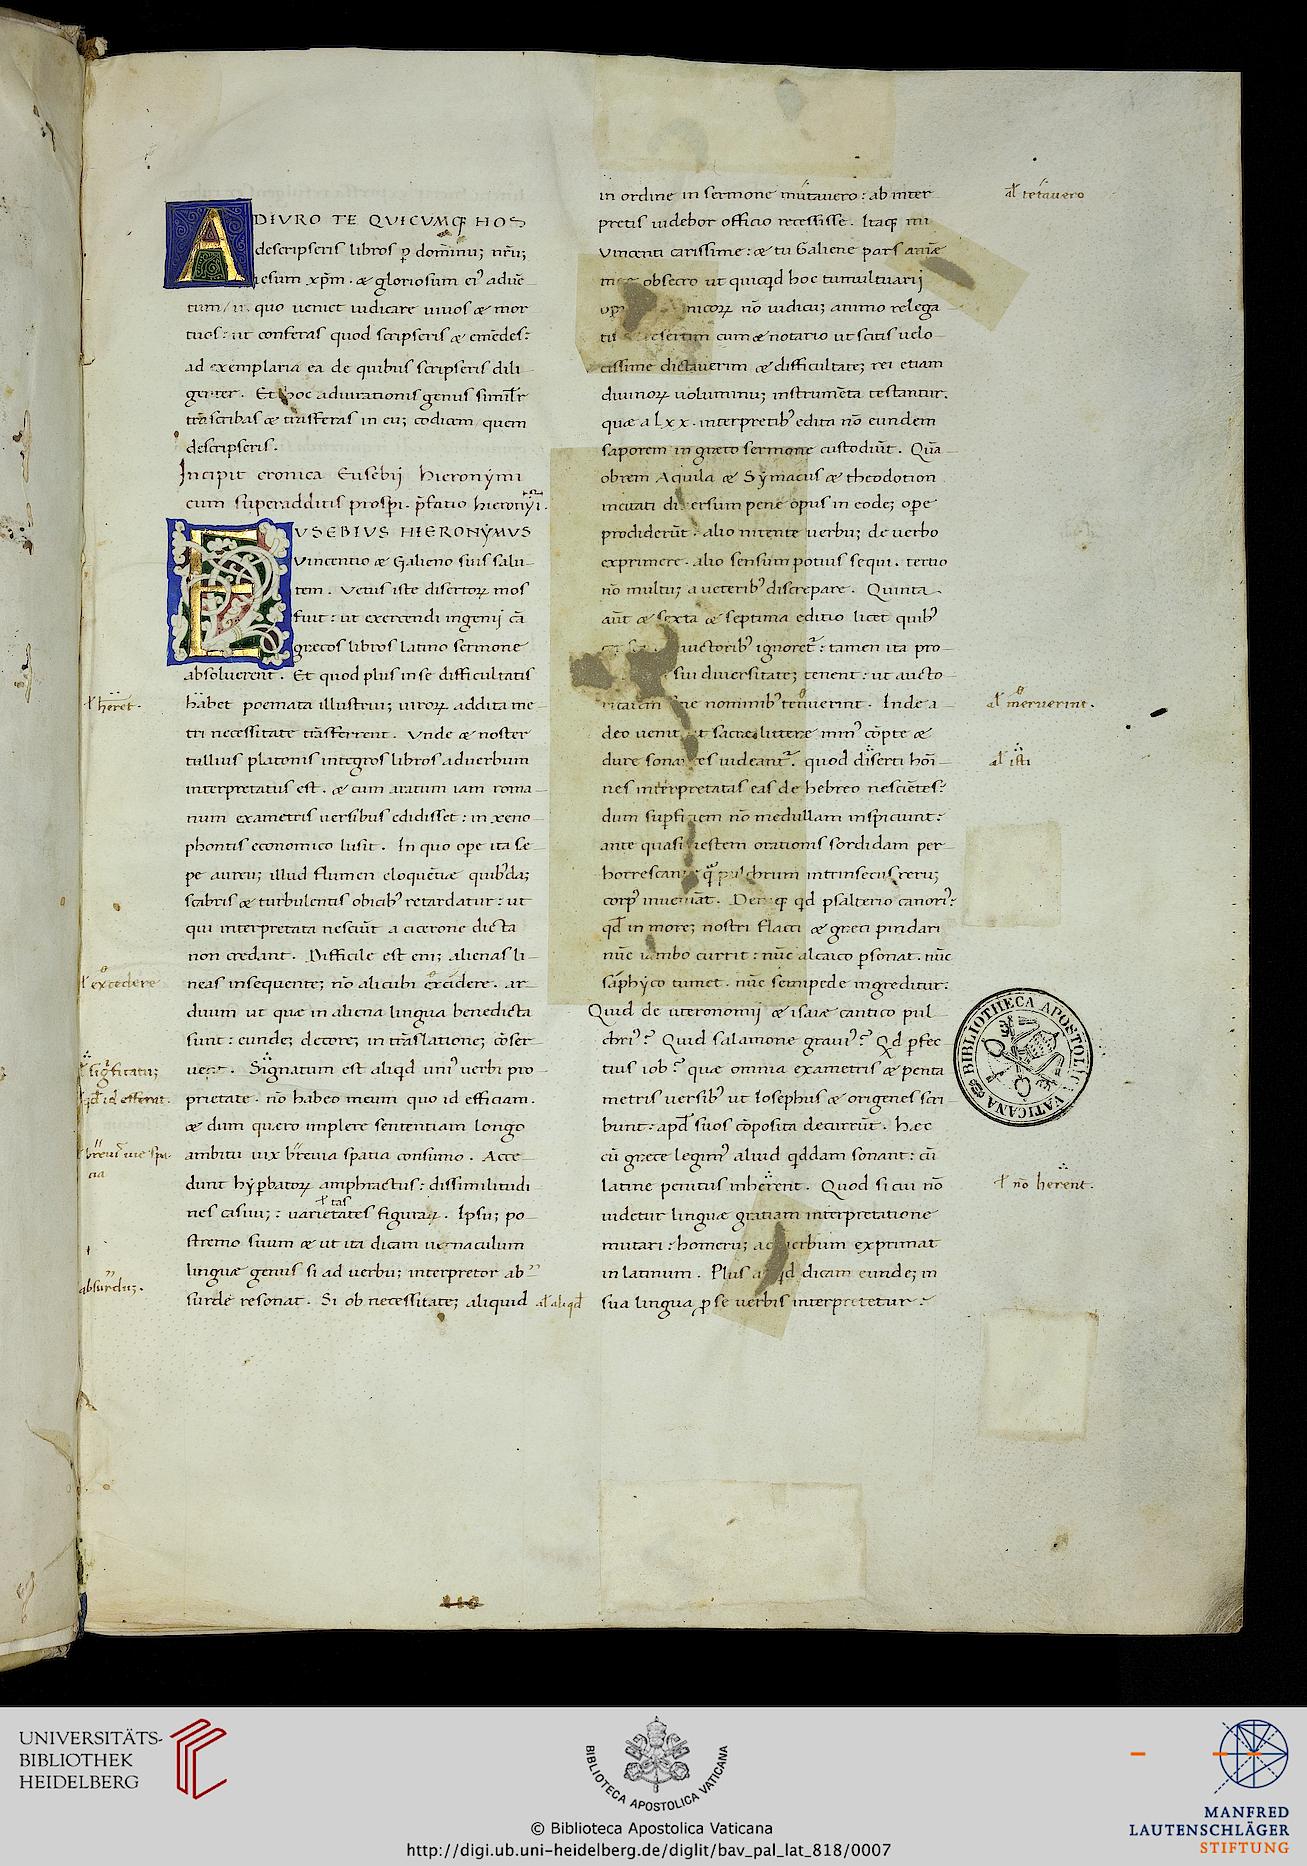 ADIVRO TE QUICVMQꝫ HOS
descripseris libros ꝑ domīnuꝫ nr̄uꝫ
iesum xp̄m. & gloriosum eiꝰ aduē
tum/ quo veniet iudicare uiuos & mor
tuos: ut conferas quod scripseris & emēdes:
ad exemplaria ea de quibus scripseris dili
genter. Et hoc adiurationis genus simil̄r
trāscribas & trāsferas in euꝫ codicem quem
descripseris.
Incipit cronica Eusebij Hieronymi
cum superadditis prosꝑi. p̄fatio hieronyi.
EVSEBIVS HIERONẎMVS
Vincentio & Galieno suis salu
tem. Vetus iste disertoꝝ mos
fuit: ut exercendi ingenij cā
grecos libros latino sermone
absoluerent. Et quod plus in se difficultatis
häbet poemata illustriuꝫ uiroꝝ addita me
tri necessitate trāsferrent. Vnde & noster
tullius platonis integros libros aduerbum
interpretatus est. & cum aratum iam roma
num exametris uersibus edidisset: in xeno
phontis economico lusit. In quo oꝑe ita sæ
pe aureuꝫ illud flumen eloquētiæ quibꝰdaꝫ
scabris & turbulentis obicibꝰ retardatur: ut
qui interpretata nesciūt a cicerone dicta
non credant. Difficile est eniꝫ alienas li
neas insequenteꝫ nō alicubi excidere. ar
duum ut quæ in aliena lingua benedicta
sunt: eundeꝫ decoreꝫ in trāslationeꝫ cōser
uent. Signatum est aliqd uniꝰ uerbi pro
prietate. nō habeo meum quo id efficiam.
& dum quero implere sententiam longo
ambitu uix breuia spatia consumo. Acce
dunt hyꝑbatoꝝ amphractus: dissimilitudi
ł tas
nes casuuꝫ: uarietates figuraꝝ. Ipsuꝫ po
stremo suum & ut ita dicam uernaculum
linguæ genus si ad uerbuꝫ interpretor ab
surde resonat. Si ob necessitateꝫ aliquid
ł heret.
ł excedere
ł significatuꝫ
ł qd id efferat.
breuis uie spa
cia
absurduꝫ.
al̄ aliqd
in ordine in sermone mutauero: ab inter
pretis uidebor officio recessisse. Itaqꝫ mi
Vincenti carissime: & tu Galiene pars animæ
meæ obsecro ut quicqd hoc tumultuarij
nicoꝝ nō iudicuꝫ animo relega
cum & notario ut scitis velo
cissime dictauerim & difficultateꝫ rei etiam
diuinoꝝ uoluminuꝫ instrumēta testantur.
quæ a lxx. interpretibꝰ edita nō eundem
saporem in greco sermone custodiūt. Quā
obrem Aquila & Sẏmacus & theodotion
incitati diuersum pene opus in eodeꝫ oꝑe
prodiderūt: alio nitente uerbuꝫ de verbo
exprimere. alio sensum potius sequi. tertio
nō multuꝫ a ueteribꝰ discrepare. Quinta
aūt & sexta & septima editio licet quibꝰ
auctoribꝰ ignoret᷑: tamen ita pro
sui diuersitateꝫ tenent: ut aucto
ne nominibꝰ tenuerint. Inde a
deo uenit ut sacræ litteræ minꝰ cōpte &
dure sonantes uideant᷑. quod diserti hōi
nes interpretatas eas de hebreo nesciētes?
dum suꝑficiem nō medullam inspiciunt:
ante quasi uestem orationis sordidam per
horrescant: q̄ꝫ pulchrum intrinsecus reruꝫ
corpꝰ inueniāt. Deniqꝫ qd psalterio canoriꝰ?
qd̄ in moreꝫ nostri flacci & greci pindari
nūc iambo currit: nūc alcaico ꝑsonat. nūc
saphẏco tumet. nūc semipede ingreditur:
Quid deuteronomij & isaiæ cantico pul
chriꝰ? Quid salamone grauiꝰ? Qd ꝑfec
tius iob? quæ omnia exametris & penta
metris uersibꝰ ut Iosephus & origenes scri
bunt: apd̄ suos cōposita decurrūt. Hæc
cū grece legimꝰ aliud qddam sonant: cū
latine penitus inherent. Quod si cui nō
videtur linguæ gratiam interpretatione
mutari: homeruꝫ ad uerbum exprimat
in latinum. Plus aliqd dicam eundeꝫ in
sua lingua ꝓse uerbis interpretetur:
al̄ tetauero
al̄ meruerint.
al̄ isti
ł nō herent.
BIBLIOTHECA APOSTOLICA VATICANA
UNIVERSITÄTS-
BIBLIOTHEK
HEIDELBERG
BIBLIOTECA APOSTOLICA VATICANA
© Biblioteca Apostolica Vaticana
http://digi.ub.uni-heidelberg.de/diglit/bav_pal_lat_818/0007
MANFRED
LAUTENSCHLÄGER
STIFTUNG